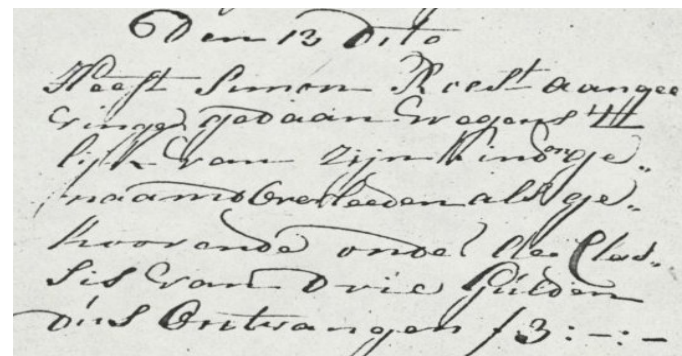 Den 13 Dito
Heeft Simon Roest aangee
vinge gedaan wegens Het
lijk van zijn kind onge„
naamd Overleeden als ge„
hoorende onder de Clas„
sis van drie Gulden
dus Ontvangen f 3:-:-